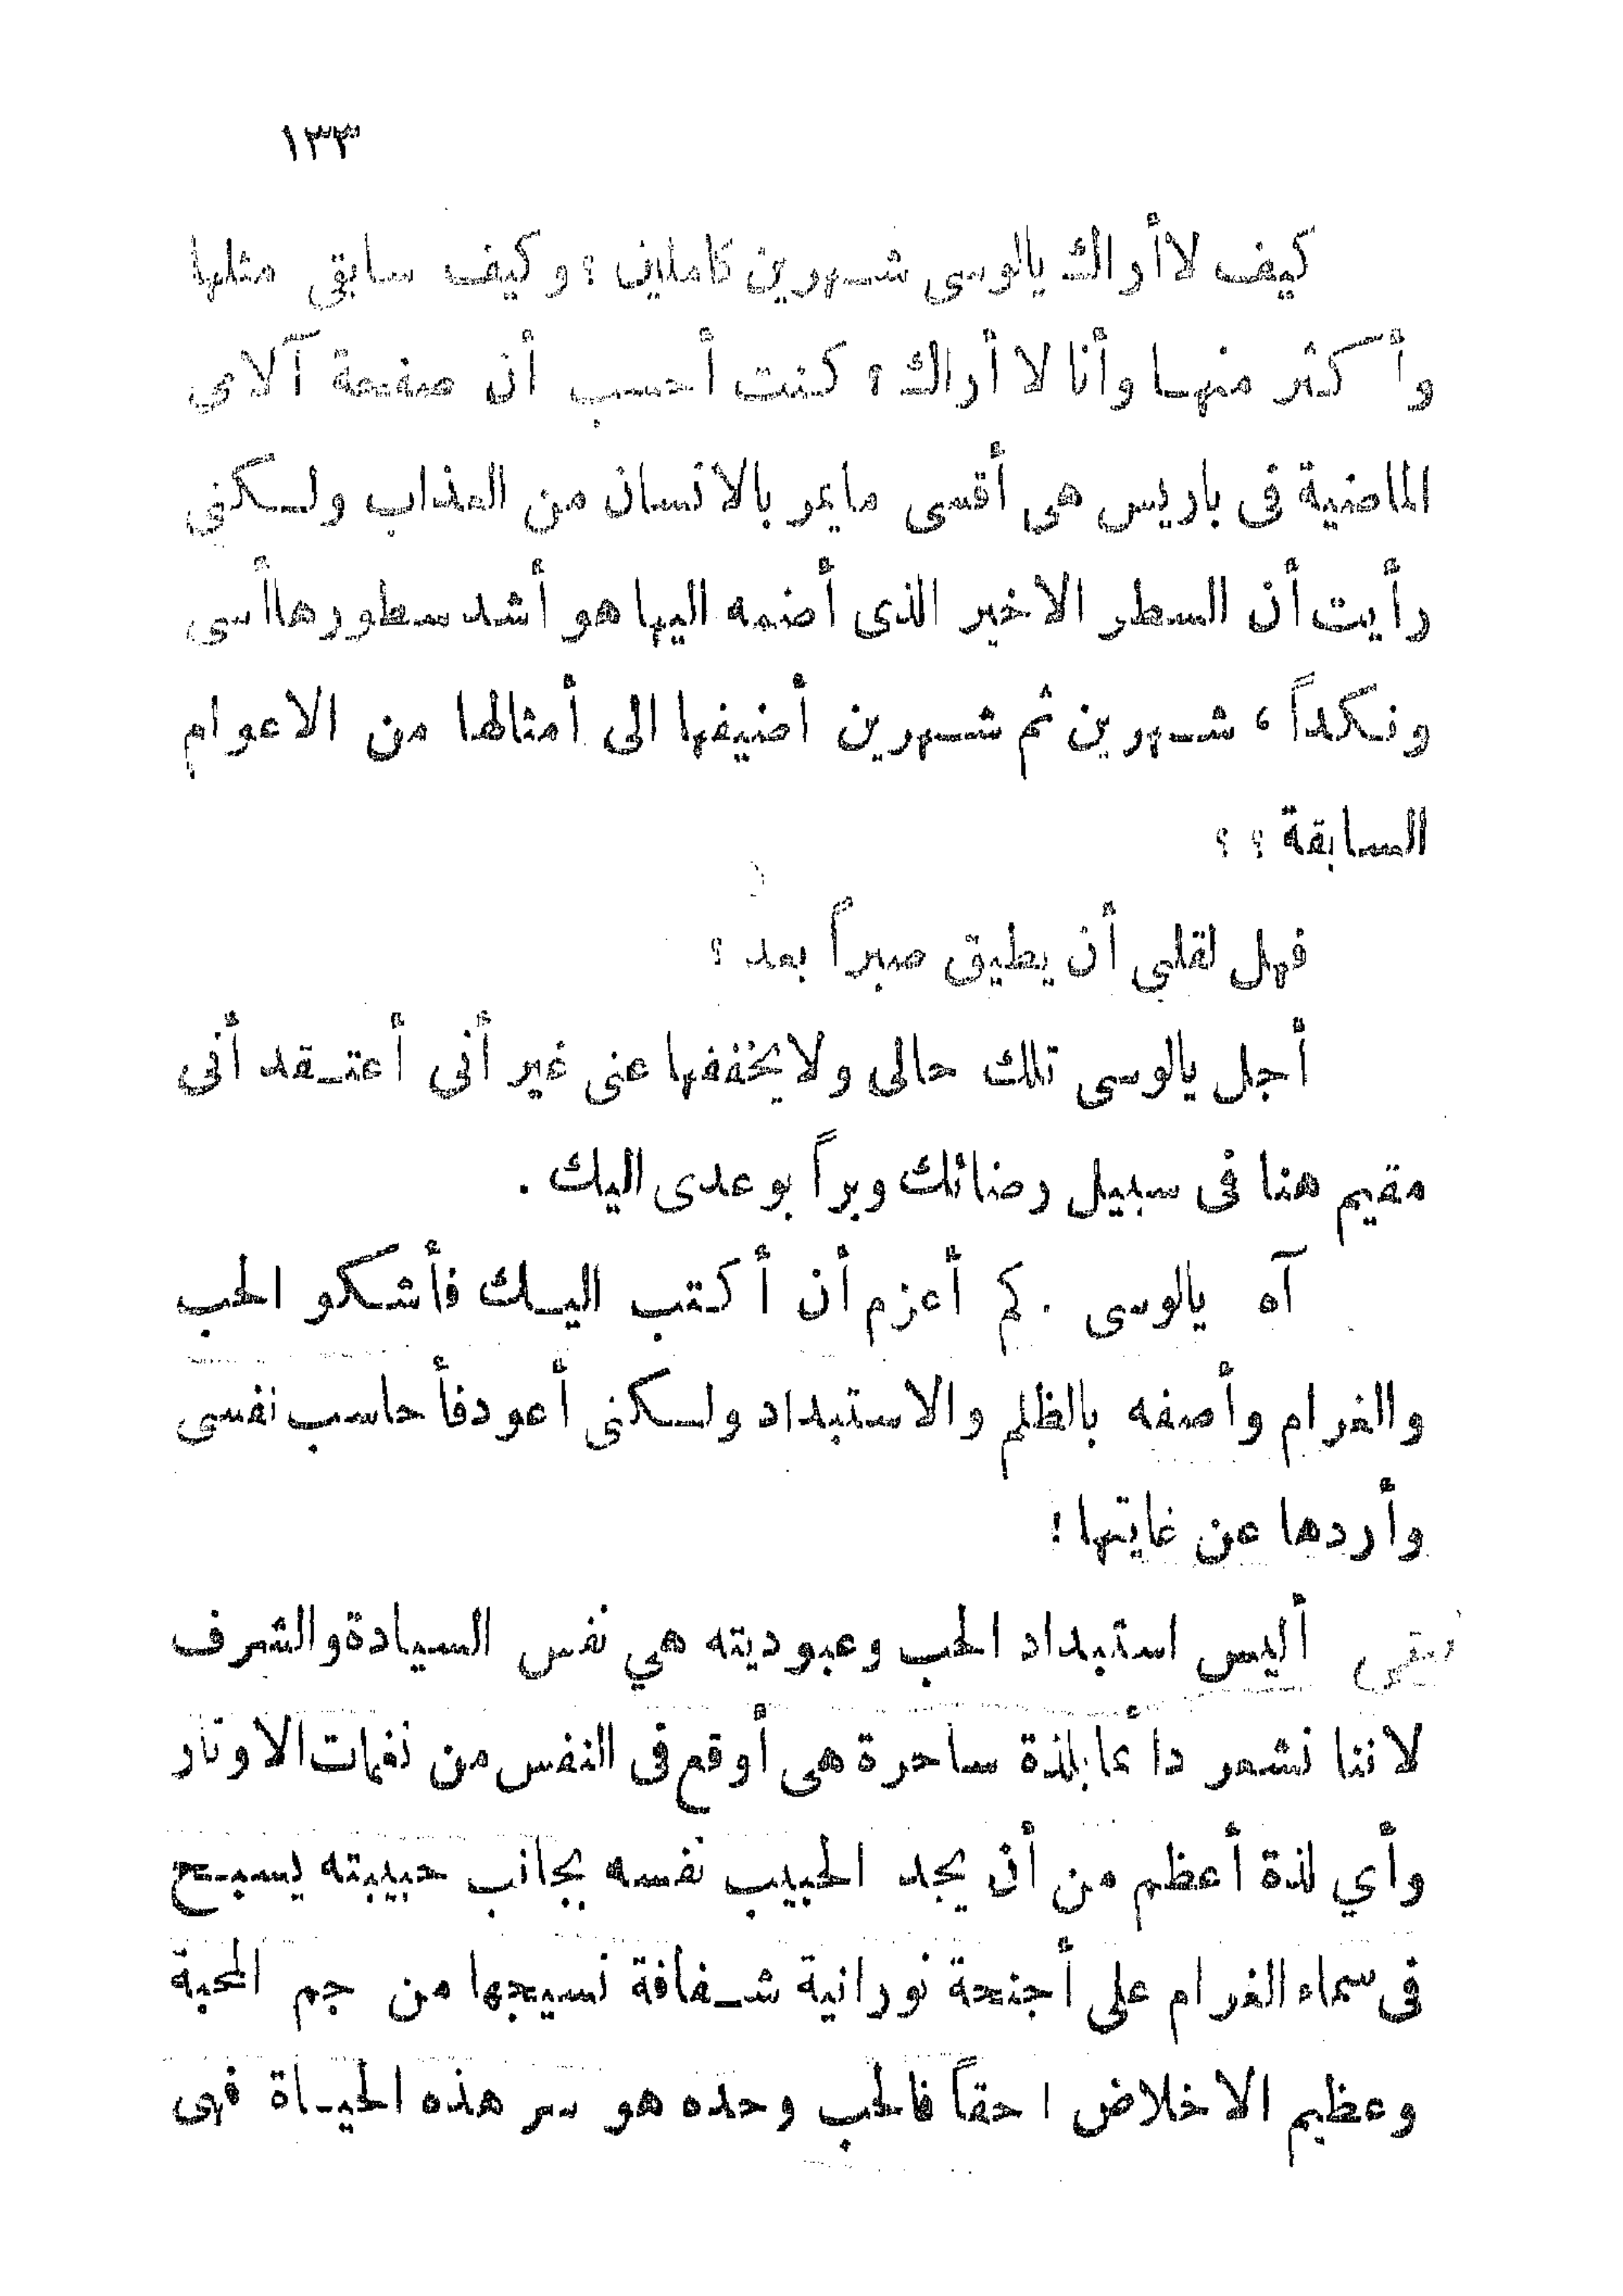 ١٣٣
كيف لا أراك يالوسى شهرين كاملين ؟ وكيف سابقى مثلها
وأكثر منها وأنا لا أراك ؟ كنت أحسب أن صفحة آلامى
الماضية فى باريس هى أقسى مايمر بالانسان من العذاب ولكنى
رأيت أن السطر الاخير الذى أضمه اليها هو أشد سطورها أسى
ونكداً ، شهرين ثم شهرين أضيفها الى أمثالها من الاعوام
السابقة ؟ ؟
فهل لقلبى أن يطيق صبراً بعد ؟
أجل يالوسى تلك حالى ولا يخففها عنى غير أنى أعتقد أنى
مقيم هنا فى سبيل رضائك وبراً بوعدى اليك .
آه يالوسى . كم أعزم أن أكتب اليك فأشكو الحب
والغرام وأصفه بالظلم والاستبداد ولكنى أعود فأحاسب نفسى
وأردها عن غايتها !
أليس استبداد الحب وعبوديته هي نفس السيادة والشرف
لاننا نشعر دائما بلذة ساحرة هى أوقع فى النفس من نغمات الاوتار
وأي لذة أعظم من أن يجد الحبيب نفسه بجانب حبيبته يسبح
فى سماء الغرام على أجنحة نورانية شفافة نسيجها من جم المحبة
وعظيم الاخلاض ! حقاً فالحب وحده هو سر هذه الحياة فهى